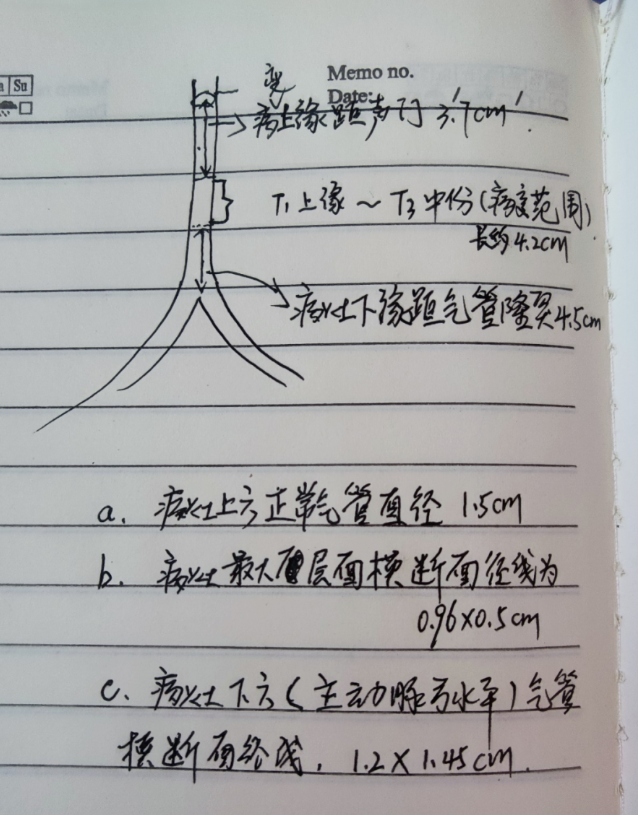 a Su
Memo no.
Date:
变
病上缘距声门 3.7cm
T₁上缘～T₃中份(病变范围)
长约4.2cm
病灶下缘距气管隆突4.5cm
a. 病灶上方正常气管直径 1.5cm
b. 病灶最大层面横断面径线为
0.96×0.5cm
c. 病灶下方(主动脉弓水平)气管
横断面径线, 1.2×1.45cm.